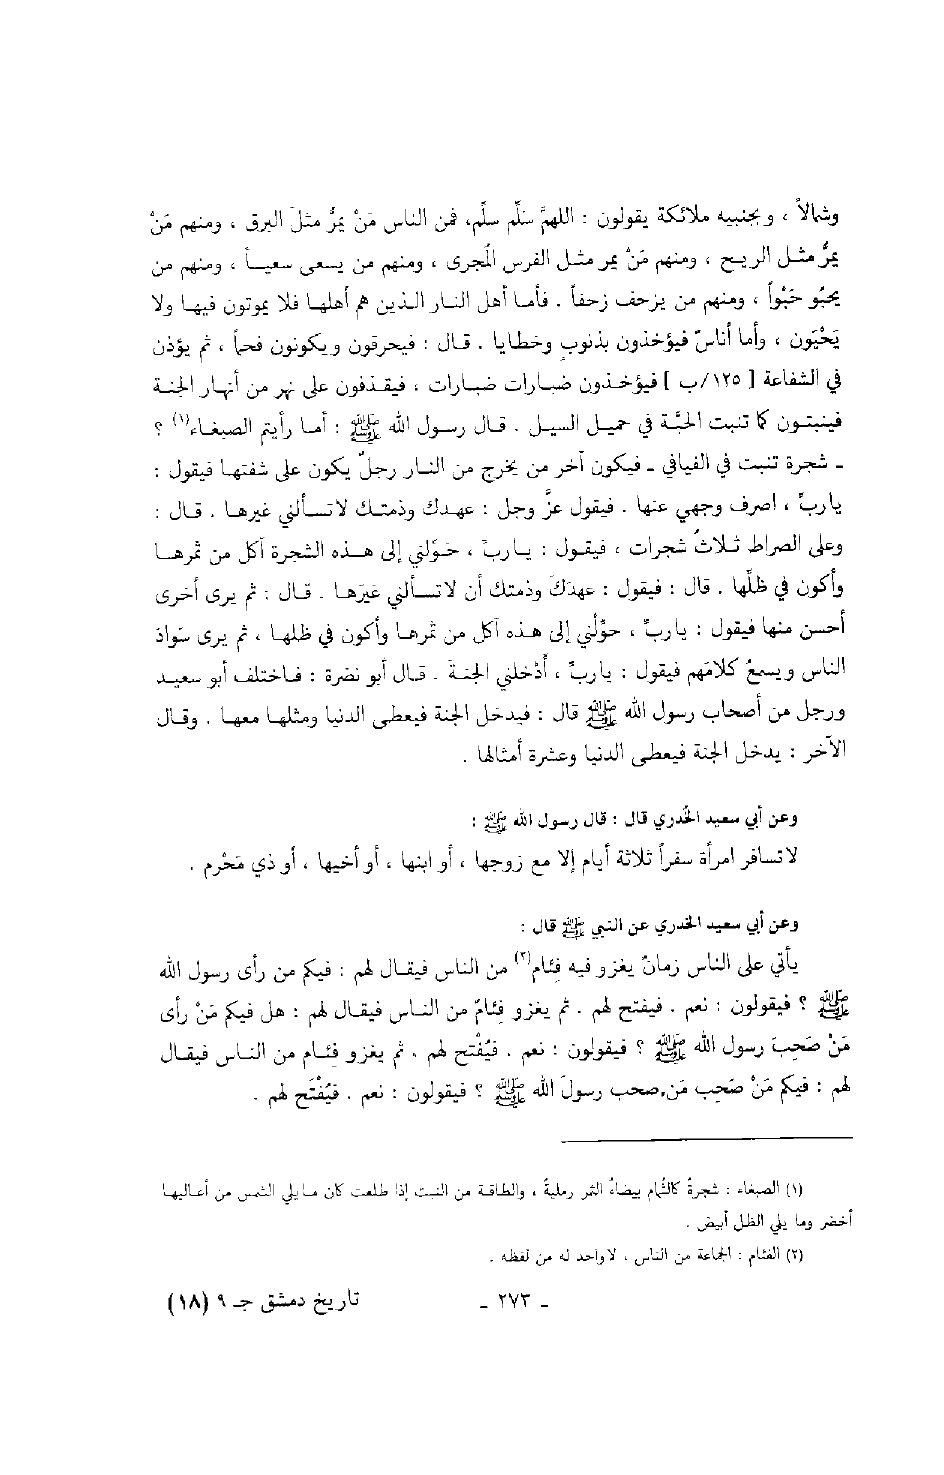 وشمالاً ، وبجنبيه ملائكة يقولون : اللهمَّ سَلِّم سلِّم، فمن الناس مَنْ يمرُّ مثلَ البرق ، ومنهم مَنْ
يمرُّ مثـل الريـح ، ومنهم مَنْ يمر مثـل الفرس المُجرى ، ومنهم من يـسعى سعيـاً ، ومنهم من
يحبُو حَبْواً ، ومنهم من يزحف زحفاً . فأما أهل النار الـذين هم أهلهـا فلا يموتون فيهـا ولا
يَحْيَون ، وأما أناسٌ فيؤخذون بذنوبٍ وخطايا . قـال : فيحرقون ويكونون فحماً ، ثم يؤذن
في الشفاعة [ ١٢٥/ب ] فيؤخـذون ضبـارات ضبـارات ، فيقـذفون على نهر من أنهار الجنـة
فينبتـون كما تنبت الحبَّة في حميل السيـل . قـال رسول الله ﷺ : أمـا رأيتم الصبغـاء(١) ؟
ـ شجرة تنبت في الفيافي ـ فيكون آخر من يخرج من النـار رجلٌ يكون على شفتهـا فيقول :
يـاربِّ ، اصرف وجهي عنها . فيقول عزَّ وجل : عهـدك وذمتـك لاتـسألني غيرهـا . قـال :
وعلى الصراط ثـلاثُ شجرات ، فيقـول : يـاربِّ ، حَوِّلني إلى هـذه الشجرة آكل من ثمرهـا
وأكون في ظلِّها . قال : فيقول : عهدَكَ وذمتك أن لاتـسألني غيَرهـا . قـال : ثم يرى أخرى
أحسن منها فيقول : ياربِّ ، حوِّلْني إلى هذه آكل من ثمرها وأكون في ظلها ، ثم يرى سَوادَ
الناس ويسمعُ كلامَهم فيقول : ياربِّ ، أدْخلني الجنةَ . قـال أبو نضرة : فـاختلف أبو سعيـد
ورجل من أصحاب رسول الله ﷺ قال : فيدخل الجنة فيعطى الدنيا ومثلهـا معهـا . وقـال
الآخر : يدخل الجنة فيعطى الدنيا وعشرة أمثالها .
وعن أبي سعيد الخُدري قال : قال رسول الله ﷺ :
لاتسافر امرأة سفراً ثلاثة أيام إلا مع زوجها ، أو ابنها ، أو أخيها ، أو ذي مَحْرم .
وعن أبي سعيد الخدري عن النبي ﷺ قال :
يأتي على الناس زمانٌ يغزو فيه فِئام(٢) من الناس فيقـال لهم : فيكم من رأى رسول الله
ﷺ ؟ فيقولون : نعم . فيفتح لهم . ثم يغزو فِئامٌ من النـاس فيقـال لهم : هل فيكم مَنْ رأى
مَنْ صَحِبَ رسول الله ﷺ ؟ فيقولون : نعم . فيُفْتح لهم . ثم يغزو فئـام من النـاس فيقـال
لهم : فيكم مَنْ صَحِب مَن صحب رسولَ الله ﷺ ؟ فيقولون : نعم . فيُفْتَح لهم .
(١) الصبغاء : شجرةٌ كالثُمام بيضاءُ الثمر رمليةٌ ، والطاقـة من النبت إذا طلعت كان مـايلي الشمس من أعـاليهـا
أخضر وما يلي الظل أبيض .
(٢) الفئام : الجماعة من الناس ، لاواحد له من لفظه .
ـ ٢٧٣ ـ تاريخ دمشق جـ ٩ (١٨)